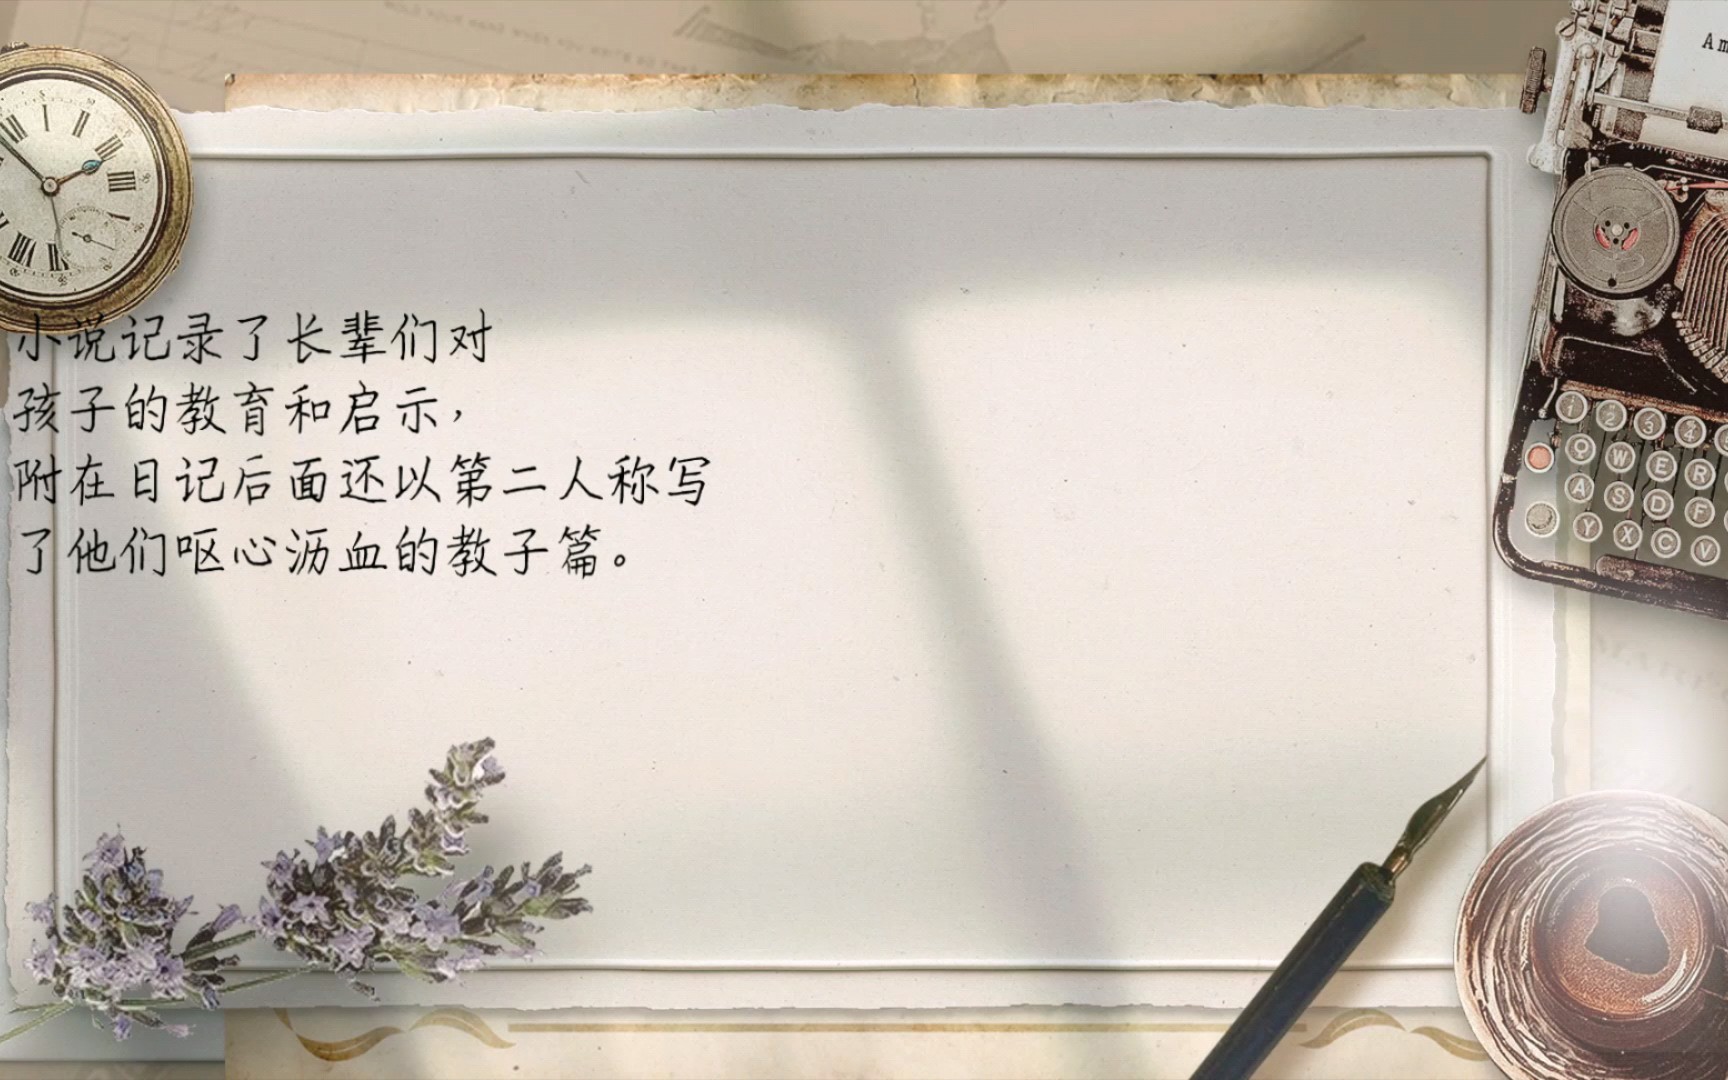 小说记录了长辈们对
孩子的教育和启示，
附在日记后面还以第二人称写
了他们呕心沥血的教子篇。
Am